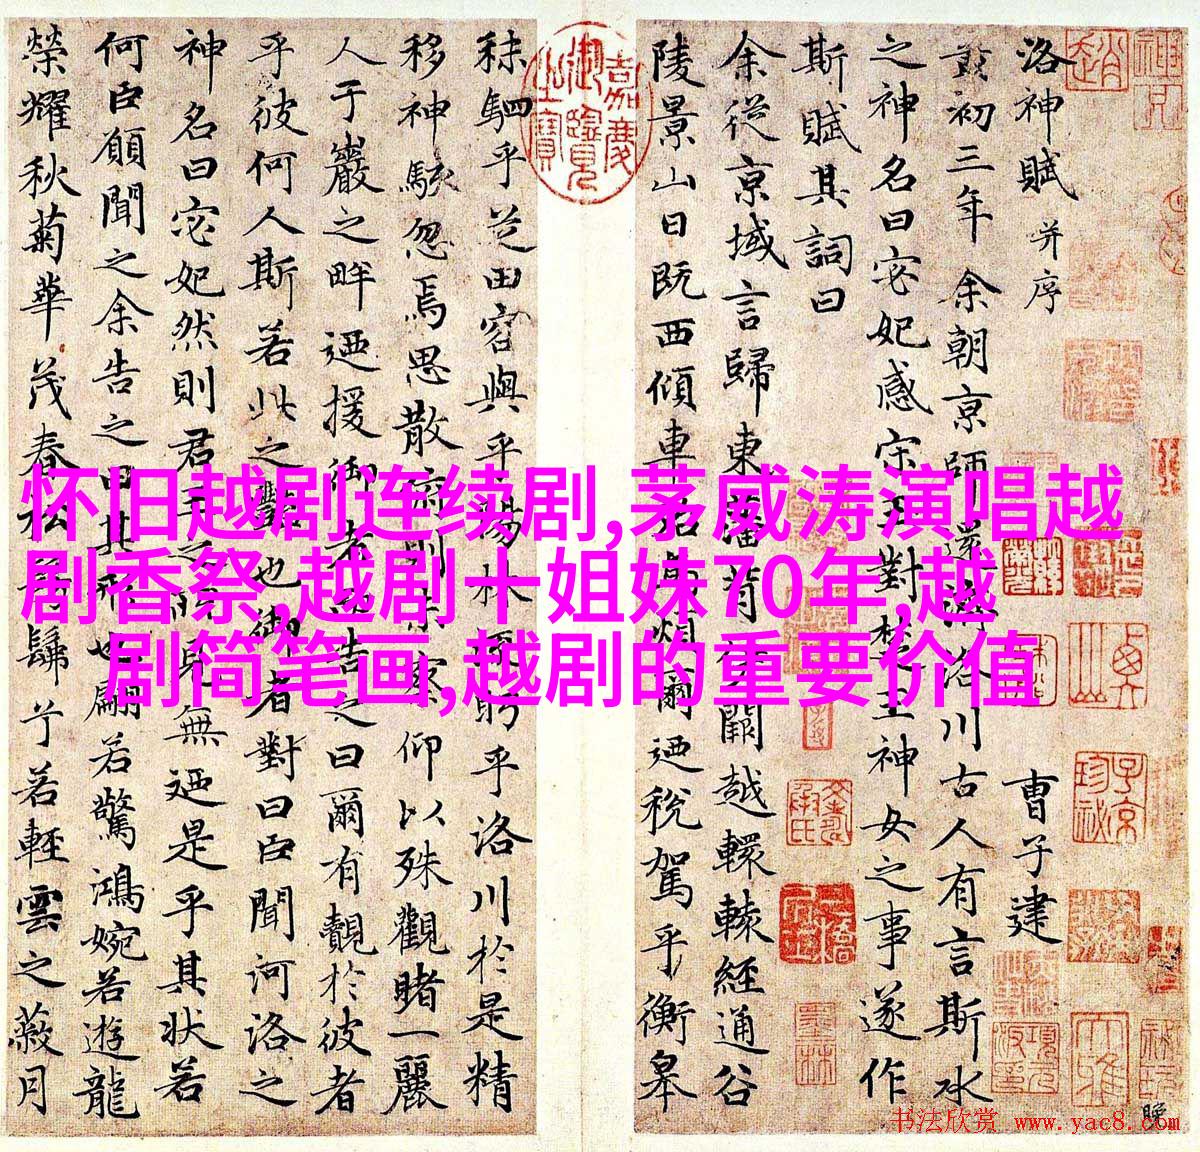 洛神賦 并序 曹子建
黃初三年余朝京師還濟洛川古人有言斯水
之神名曰宓妃感宋玉對楚王神女之事遂作
斯賦其詞曰
余從京域言歸東藩背伊闕越轘轅經通谷
陵景山日既西傾車殆馬煩爾迺稅駕乎衡皋
秣駟乎芝田容與乎陽林流眄乎洛川於是精
移神駭忽焉思散俯則未察仰以殊觀睹一麗
人于巖之畔迺援御者而告之曰爾有覿於彼者
乎彼何人斯若此之豔也御者對曰臣聞河洛之
神名曰宓妃然則君王之所見無迺是乎其狀若
何臣願聞之余告之曰其形也翩若驚鴻婉若遊龍
榮耀秋菊華茂春松髣髴兮若輕雲之蔽月
嘉慶御覽之寶
怀旧越剧连续剧,茅威涛演唱越
剧香祭,越剧十姐妹70年,越
剧简笔画,越剧的重要价值
书法欣赏 www.yac8.com